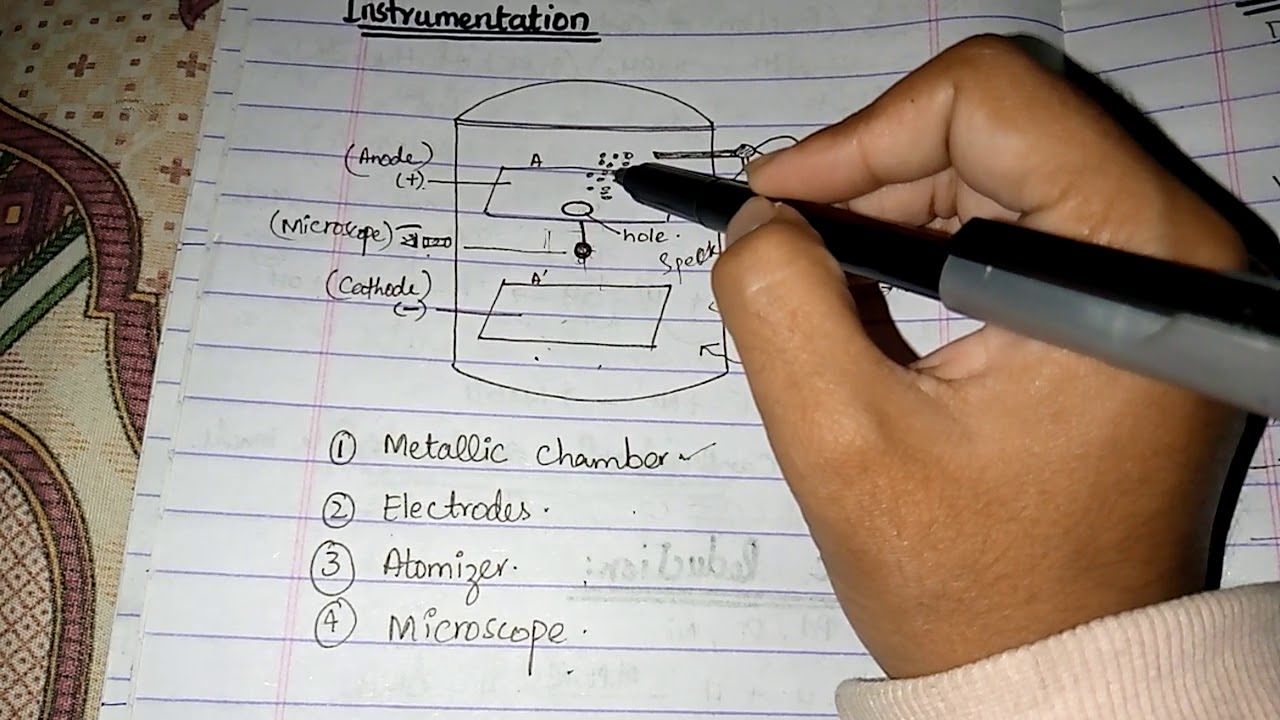 Instrumentation
(Anode)
(+)
A
hole.
(Microscope)
(Cathode)
(-)
A'
① Metallic chamber
② Electrodes.
③ Atomizer.
④ Microscope.